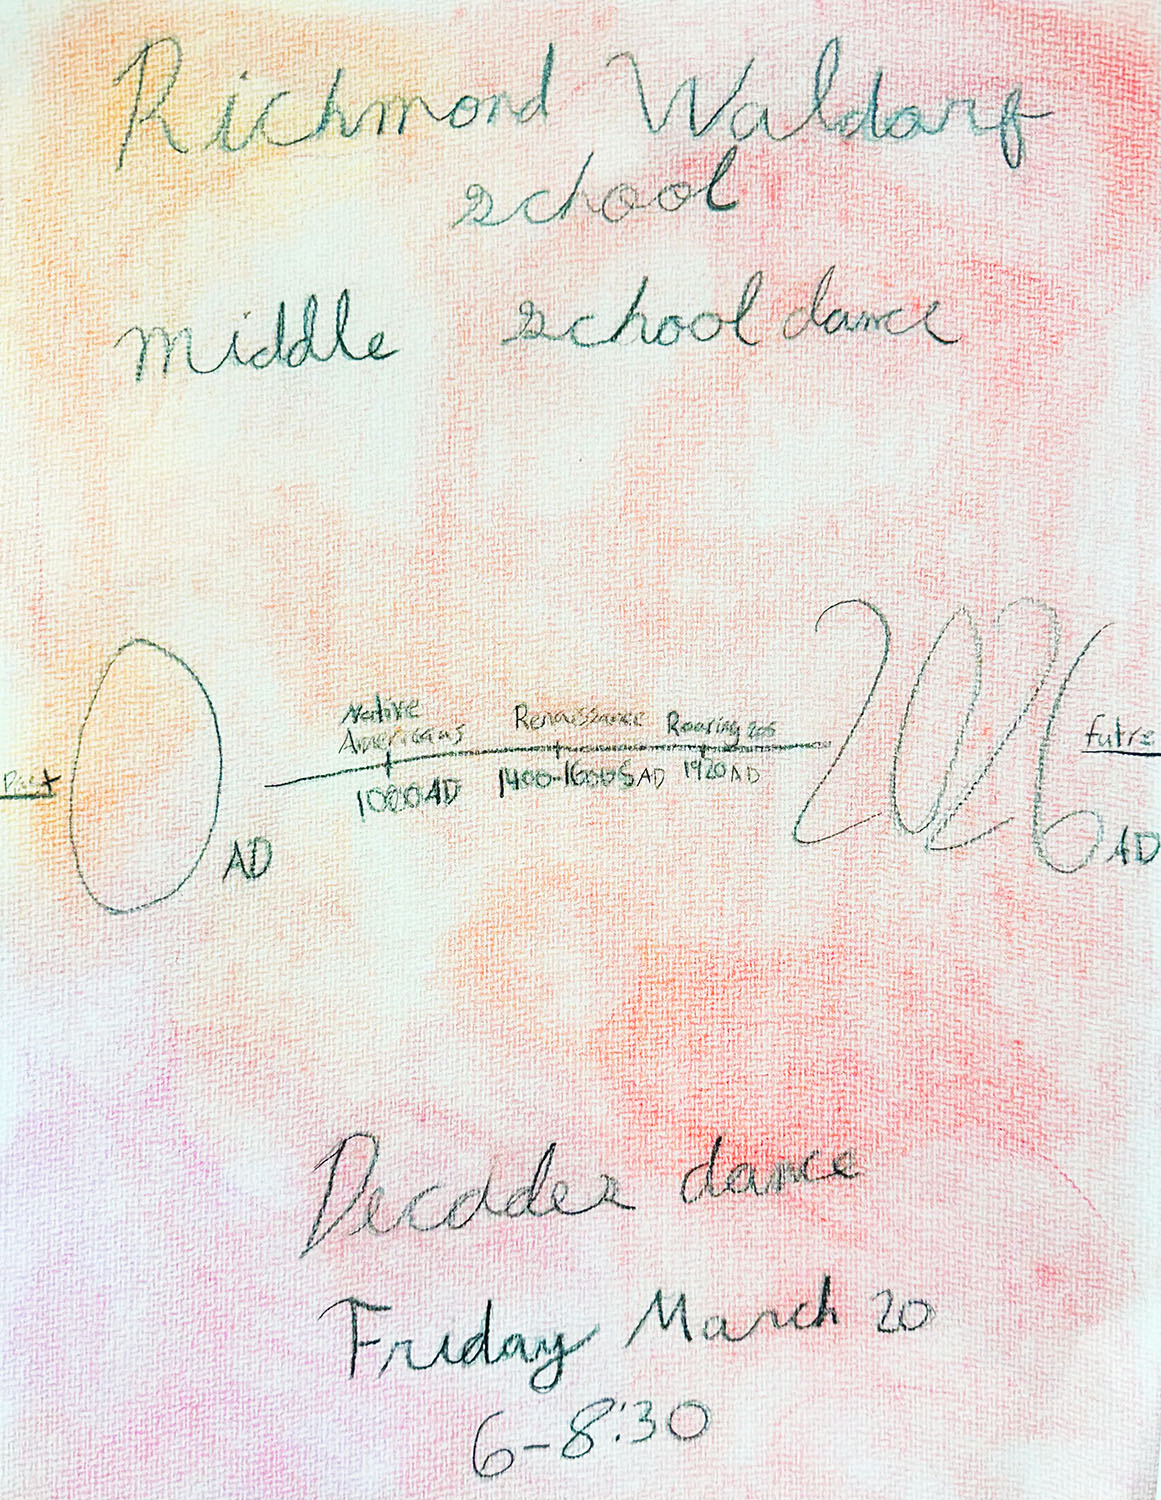 Richmond Waldorf
School
Middle School dance
Past
0 AD
Native Americans
1000 AD
Renaissance
1400-1600s AD
Roaring 20s
1920 AD
2026 AD
futre
Decades dance
Friday March 20
6-8:30